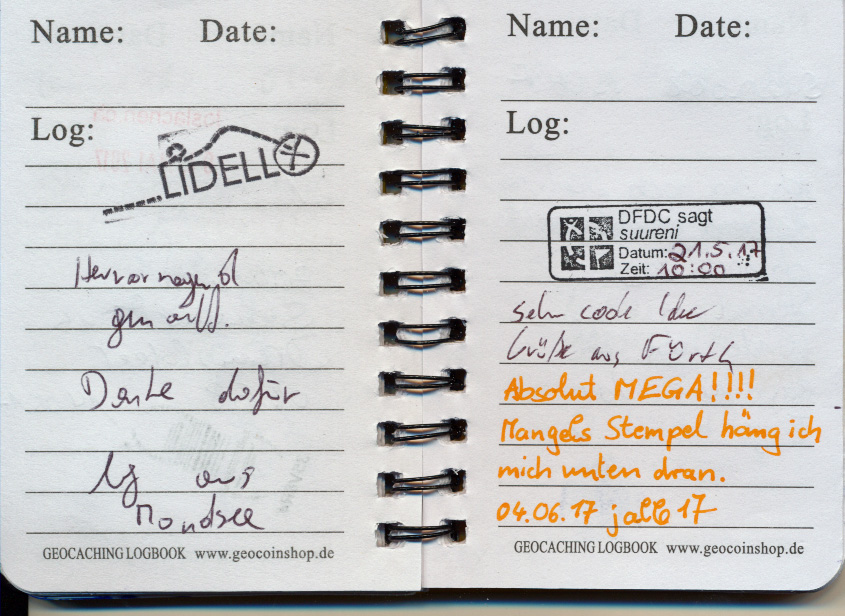 Name: Date:
Log:
LIDELL
Hervorragend
gemacht.
Danke dafür
lg aus
Mondsee
GEOCACHING LOGBOOK www.geocoinshop.de
Name: Date:
Log:
DFDC sagt
suureni
Datum: 21.5.17
Zeit: 10:00
sehr coole Idee
Grüße aus Fürth
Absolut MEGA!!!!
Mangels Stempel häng ich
mich unten dran.
04.06.17 jalb17
GEOCACHING LOGBOOK www.geocoinshop.de